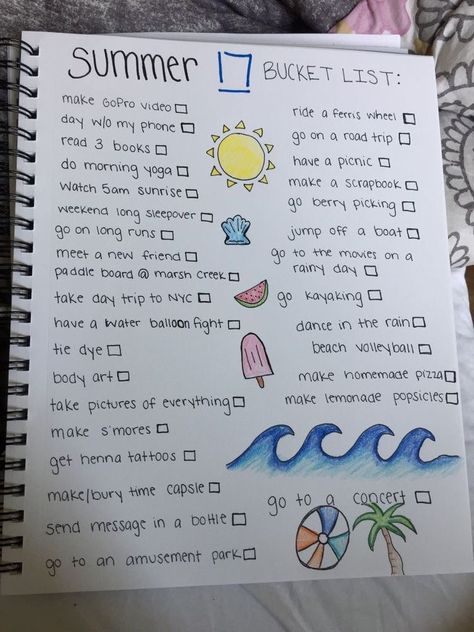 SUMMER BUCKET LIST:
make GoPro video
day w/o my phone
read 3 books
do morning yoga
watch 5am sunrise
weekend long sleepover
go on long runs
meet a new friend
paddle board @ marsh creek
take day trip to NYC
have a water balloon fight
tie dye
body art
take pictures of everything
make s'mores
get henna tattoos
make/bury time capsle
send message in a bottle
go to an amusement park
ride a ferris wheel
go on a road trip
have a picnic
make a scrapbook
go berry picking
jump off a boat
go to the movies on a
rainy day
go kayaking
dance in the rain
beach volleyball
make homemade pizza
make lemonade popsicles
go to a concert